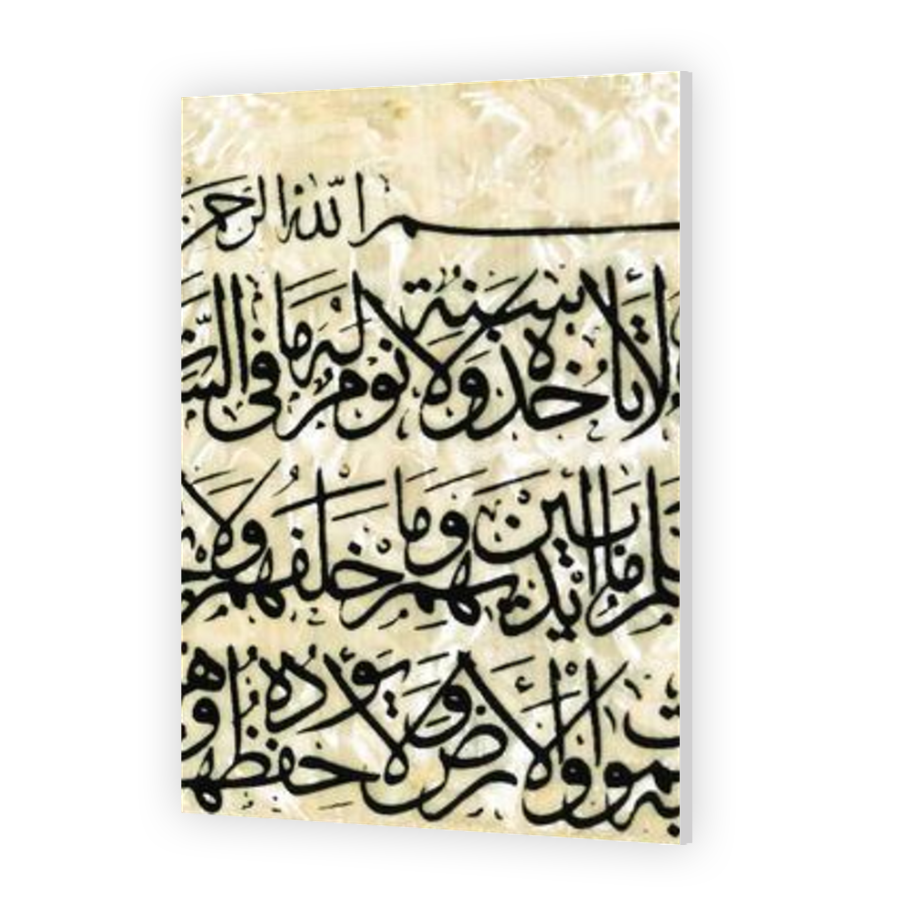 بسم الله الرحمن
لا تأخذه سنة ولا نوم له ما في
ما بين أيديهم وما خلفهم ولا
والأرض ولا يؤده حفظهما